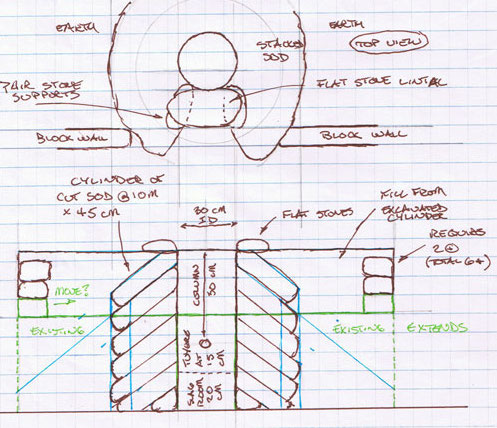 EARTH
EARTH
TOP VIEW
STACKED
SOD
PAIR STONE
SUPPORTS
FLAT STONE LINTAL
BLOCK WALL
BLOCK WALL
CYLINDER OF
CUT SOD @ 10M
x 45 CM
30 CM
ID
FLAT STONES
FILL FROM
EXCAVATED
CYLINDER
REQUIRES
2@
(TOTAL 6+)
MOVE?
COLUMN
50 CM
EXISTING
TUYERE
AT
15 CM
EXISTING
EXTENDS
SLAG
ROOM
20 CM